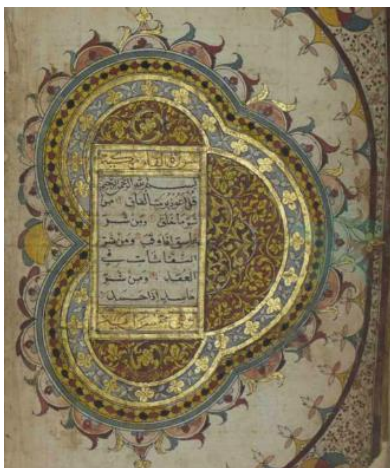 سورة الفلق
بسم الله الرحمن الرحيم
قل أعوذ برب الفلق من
شر ما خلق ومن شر
غاسق إذا وقب ومن شر
النفاثات في
العقد ومن شر
حاسد إذا حسد